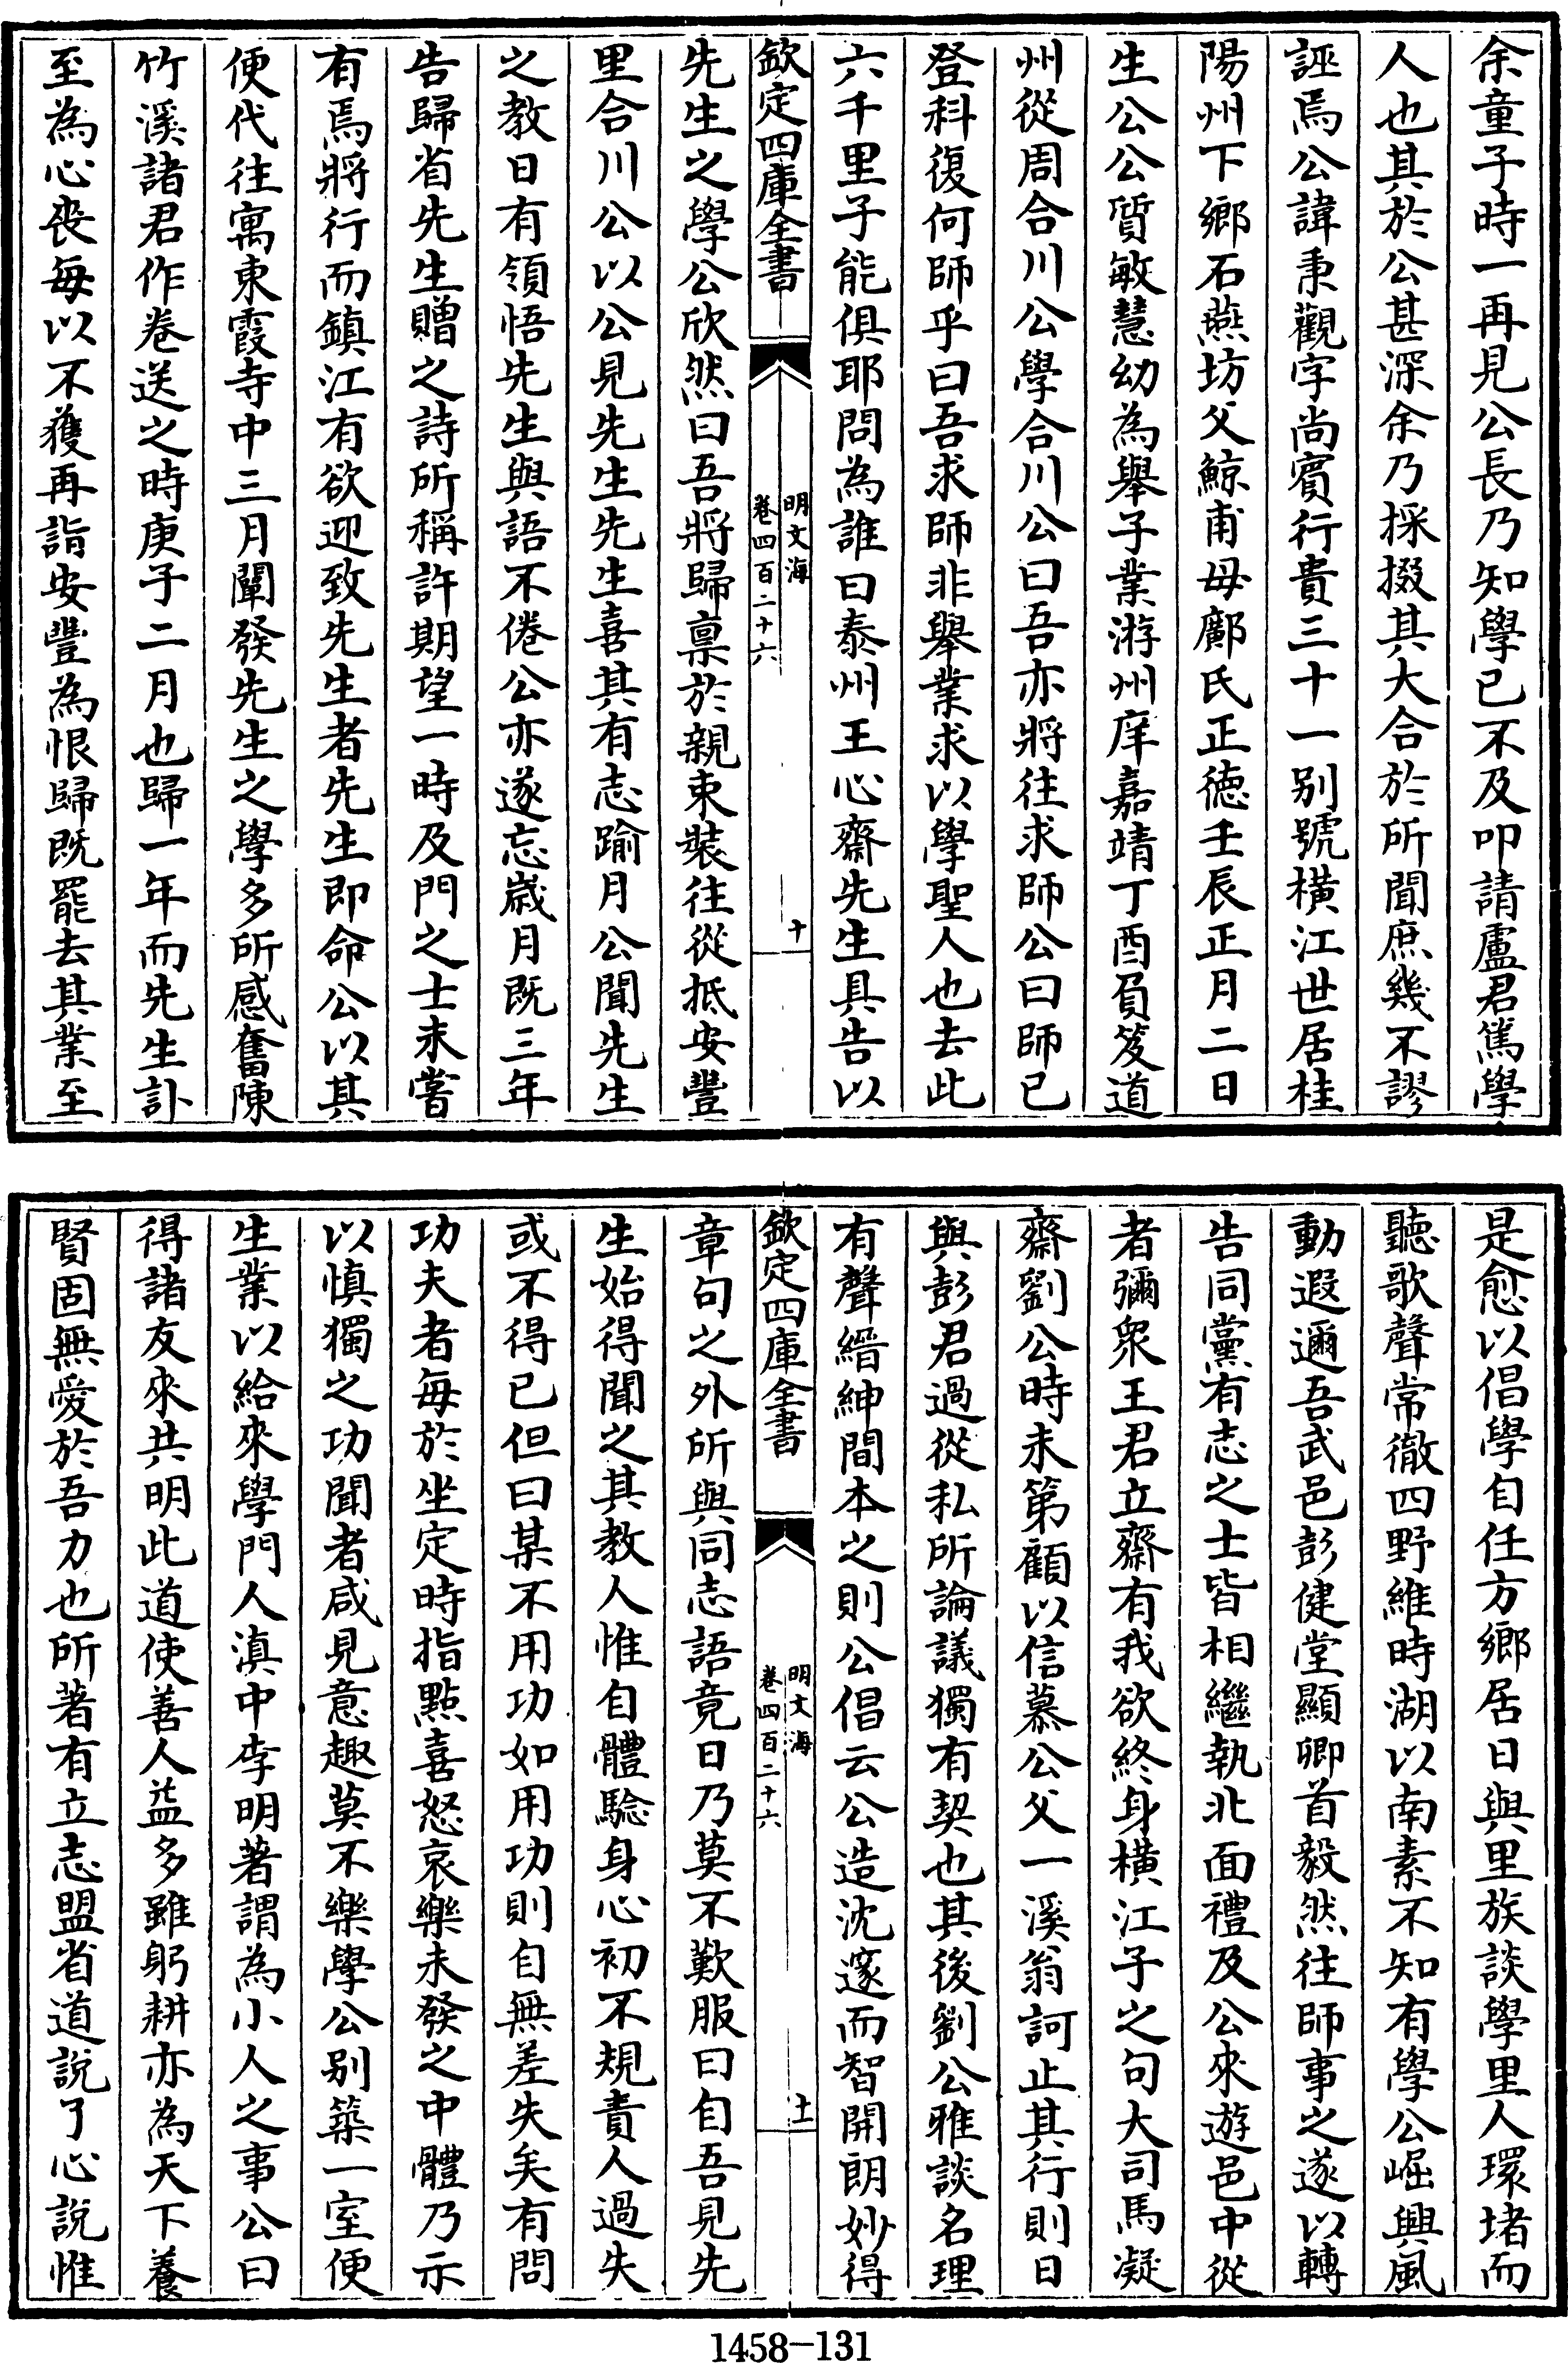 余童子時一再見公長乃知學已不及叩請盧君篤學
人也其於公甚深余乃採掇其大合於所聞庶幾不謬
誣焉公諱秉觀字尚賓行貴三十一別號橫江世居桂
陽州下鄉石燕坊父鯨甫母鄺氏正德壬辰正月二日
生公公質敏慧幼為舉子業游州庠嘉靖丁酉負笈道
州從周合川公學合川公曰吾亦將往求師公曰師已
登科復何師乎曰吾求師非舉業求以學聖人也去此
六千里子能俱耶問為誰曰泰州王心齋先生具告以
欽定四庫全書
明文海
卷四百二十六
十
先生之學公欣然曰吾將歸稟於親束裝往從抵安豐
里合川公以公見先生先生喜其有志踰月公聞先生
之教日有領悟先生與語不倦公亦遂忘歲月既三年
告歸省先生贈之詩所稱許期望一時及門之士未嘗
有焉將行而鎮江有欲迎致先生者先生即命公以其
便代往寓東霞寺中三月闡發先生之學多所感奮陳
竹溪諸君作卷送之時庚子二月也歸一年而先生訃
至為心喪每以不獲再詣安豐為恨歸既罷去其業至
是愈以倡學自任方鄉居日與里族談學里人環堵而
聽歌聲常徹四野維時湖以南素不知有學公崛興風
動遐邇吾武邑彭健堂顯卿首毅然往師事之遂以轉
告同黨有志之士皆相繼執北面禮及公來遊邑中從
者彌衆王君立齋有我欲終身橫江子之句大司馬凝
齋劉公時未第顧以信慕公父一溪翁訶止其行則日
與彭君過從私所論議獨有契也其後劉公雅談名理
有聲縉紳間本之則公倡云公造沈邃而智開朗妙得
欽定四庫全書
明文海
卷四百二十六
十一
章句之外所與同志語竟日乃莫不歎服曰自吾見先
生始得聞之其教人惟自體驗身心初不規責人過失
或不得已但曰某不用功如用功則自無差失矣有問
功夫者每於坐定時指點喜怒哀樂未發之中體乃示
以慎獨之功聞者咸見意趣莫不樂學公別築一室便
生業以給來學門人滇中李明著謂為小人之事公曰
得諸友來共明此道使善人益多雖躬耕亦為天下養
賢固無愛於吾力也所著有立志盟省道說了心說惟
1458-131